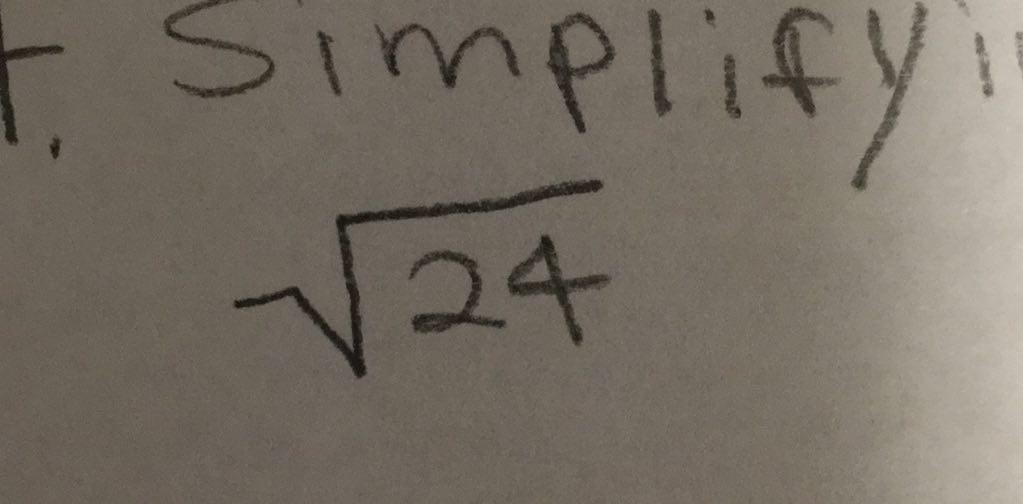 . Simplifyi
√24